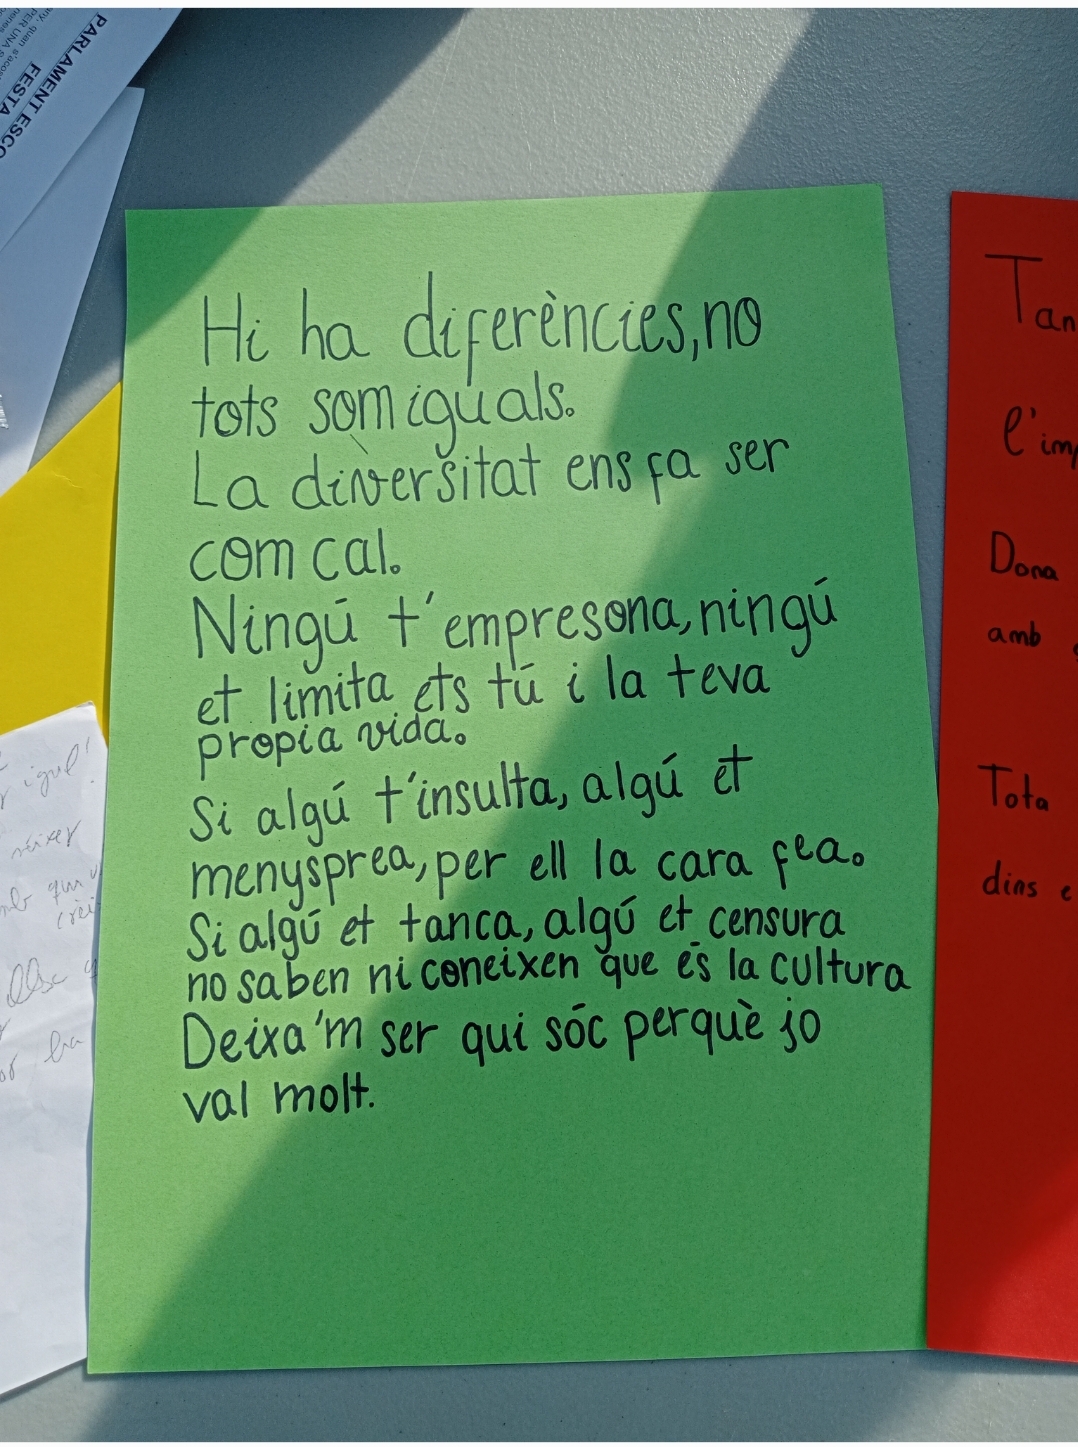 PARLAMENT ESCO
FESTA
PER UNA
Hi ha diferències, no
tots som iguals.
La diversitat ens fa ser
com cal.
Ningú t'empresona, ningú
et limita ets tú i la teva
propia vida.
Si algú t'insulta, algú et
menysprea, per ell la cara fea.
Si algú et tanca, algú et censura
no saben ni coneixen que és la cultura
Deixa'm ser qui sóc perquè jo
val molt.
Tan
l'im
Dona
amb
Tota
dins e
igual!
néixer
qui
ha